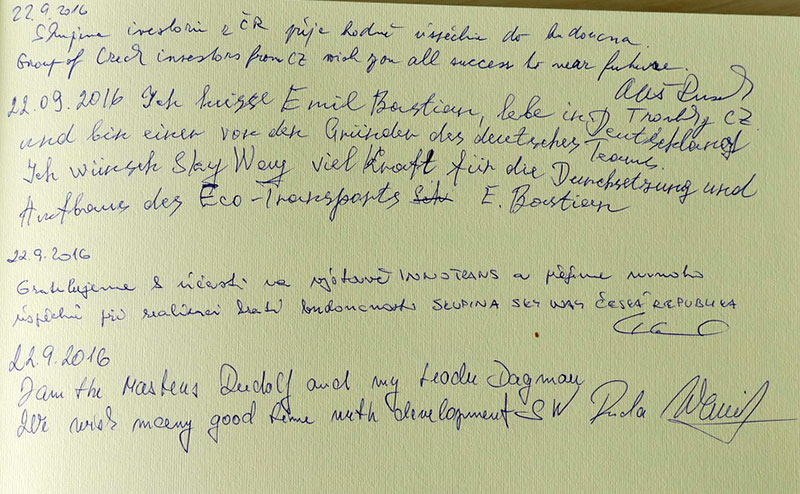 22.9.2016
Skupina investorů z ČR přeje hodně úspěchů do budoucna.
Group of Czech investors from CZ wish you all success to near future.
22.09.2016 Ich heisse Emil Bastian, lebe in Deutschland CZ
und bin einer von den Gründer des deutsches Teams.
Ich wünsch Sky Way viel Kraft für die Durchsetzung und
Aufbaus des Eco-Transports E. Bastian
22.9.2016
Gratulujeme k účasti na výstavě INNOTRANS a přejeme mnoho
úspěchů při realizaci budoucnosti SKUPINA SKY WAY ČESKÁ REPUBLIKA
22.9.2016
I am the Masters Rudolf and my leader Dagmar
We wish many good time with development SW